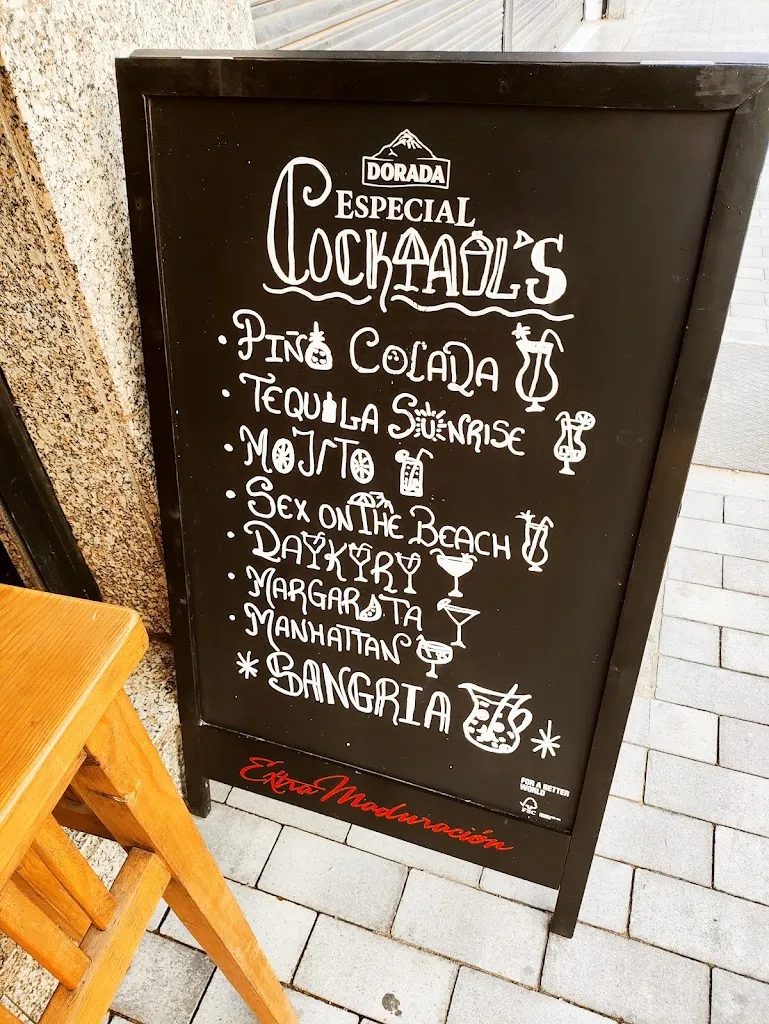 DORADA
ESPECIAL
COCKTAIL'S
• PIÑA COLADA
• TEQUILA SUNRISE
• MOJITO
• SEX ON THE BEACH
• DAYKYRY
• MARGARITA
• MANHATTAN
* SANGRIA *
Extra Maduración
FOR A BETTER
WORLD